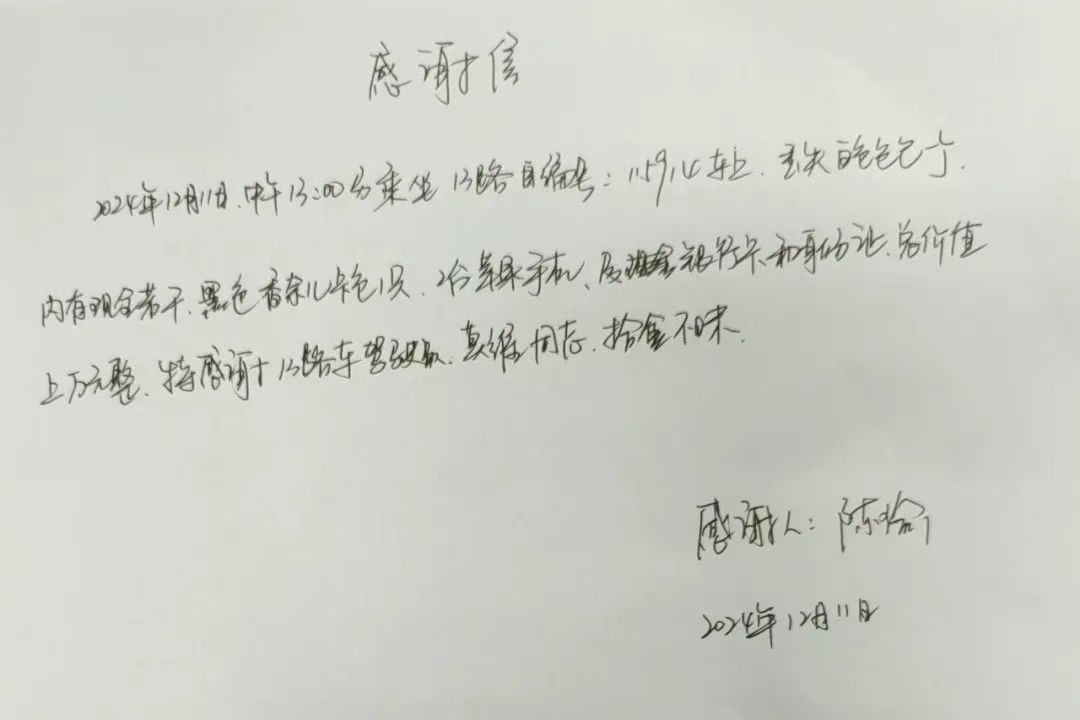 感谢信
2024年12月11日.中午13:00分乘坐13路自编号:115914车上.丢失白色包包一个.
内有现金若干.黑色香奈儿卡包1只.2台苹果手机、及银行卡和身份证.总价值
上万元整.特感谢13路车驾驶员.同志.拾金不昧.
感谢人:陈
2024年12月11日